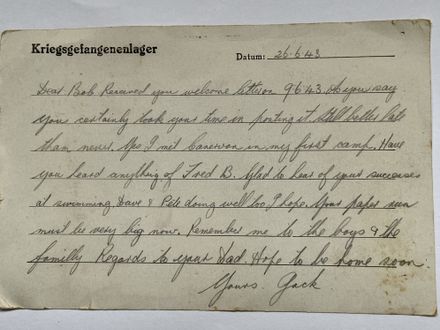 Kriegsgefangenenlager Datum: 26.6.43
Dear Bob Received you welcome letter on 9.6.43. As you say
You certainly took your time in posting it. Still better late
than never. Yes I met Cameron in my first camp. Have
you heard anything of Fred B. Glad to hear of your successes
at swimming Dave & Pete doing well too I hope. Your paper run
must be very big now. Remember me to the boys & the
familly Regards to your Dad. Hope to be home soon.
Yours Jack